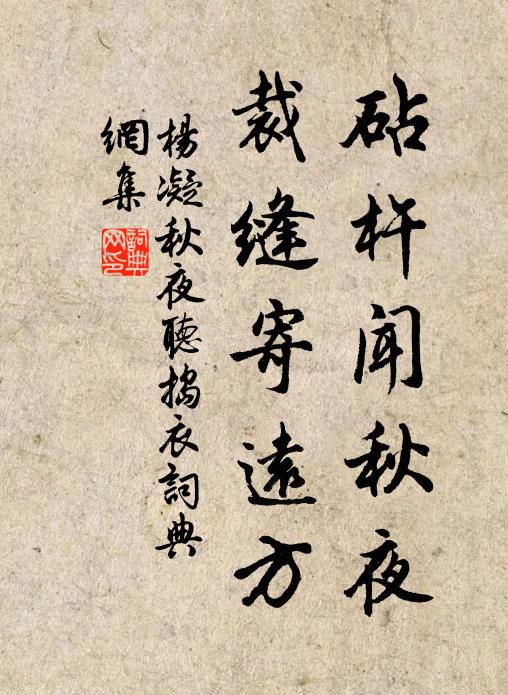 砧杵闻秋夜
裁缝寄远方
楊凝秋夜聽搗衣詞典
網集
詞典
网印